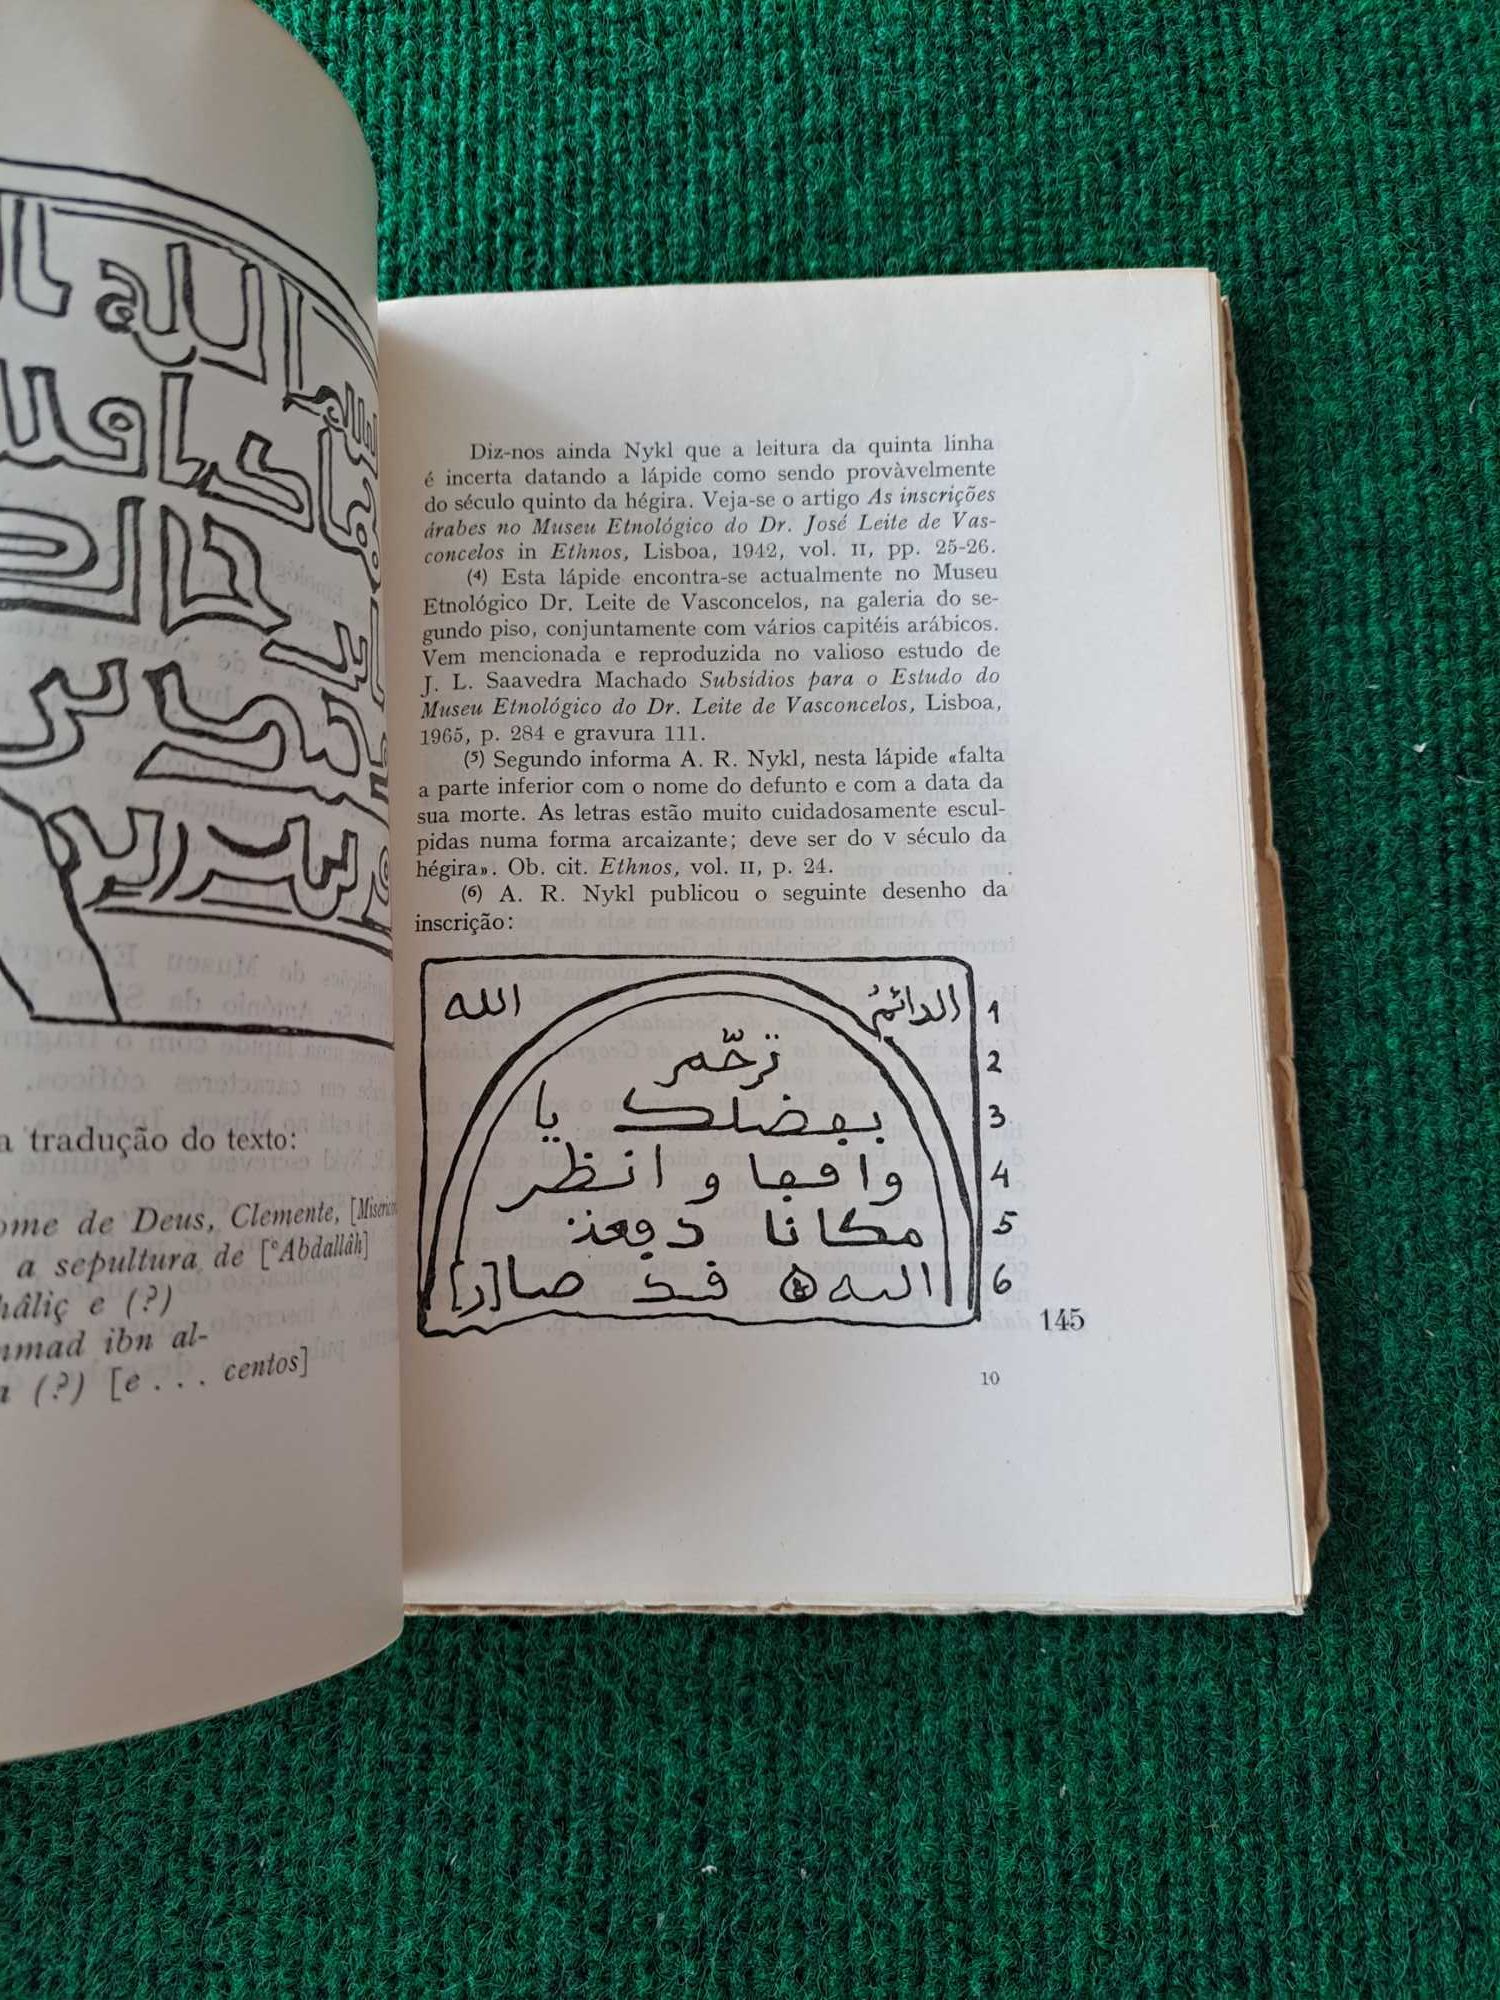 a tradução do texto:
ome de Deus, Clemente, [Miseric
a sepultura de [ᶜAbdallâh]
hâliç e (?)
mmad ibn al-
(?) [e . . . centos]
Diz-nos ainda Nykl que a leitura da quinta linha
é incerta datando a lápide como sendo provàvelmente
do século quinto da hégira. Veja-se o artigo As inscrições
árabes no Museu Etnológico do Dr. José Leite de Vas-
concelos in Ethnos, Lisboa, 1942, vol. II, pp. 25-26.
(4) Esta lápide encontra-se actualmente no Museu
Etnológico Dr. Leite de Vasconcelos, na galeria do se-
gundo piso, conjuntamente com vários capitéis arábicos.
Vem mencionada e reproduzida no valioso estudo de
J. L. Saavedra Machado Subsídios para o Estudo do
Museu Etnológico do Dr. Leite de Vasconcelos, Lisboa,
1965, p. 284 e gravura 111.
(5) Segundo informa A. R. Nykl, nesta lápide «falta
a parte inferior com o nome do defunto e com a data da
sua morte. As letras estão muito cuidadosamente escul-
pidas numa forma arcaizante; deve ser do V século da
hégira». Ob. cit. Ethnos, vol. II, p. 24.
(6) A. R. Nykl publicou o seguinte desenho da
inscrição:
الدائمُ الله 1
ترحّم 2
بفضلك يا 3
واقفا و انظر 4
مكانا دفعن 5
اليه قد صا[ر] 6
145
10